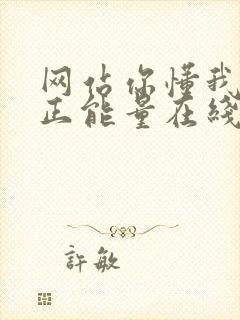 网佔你懂我
正能量在綫
許敏